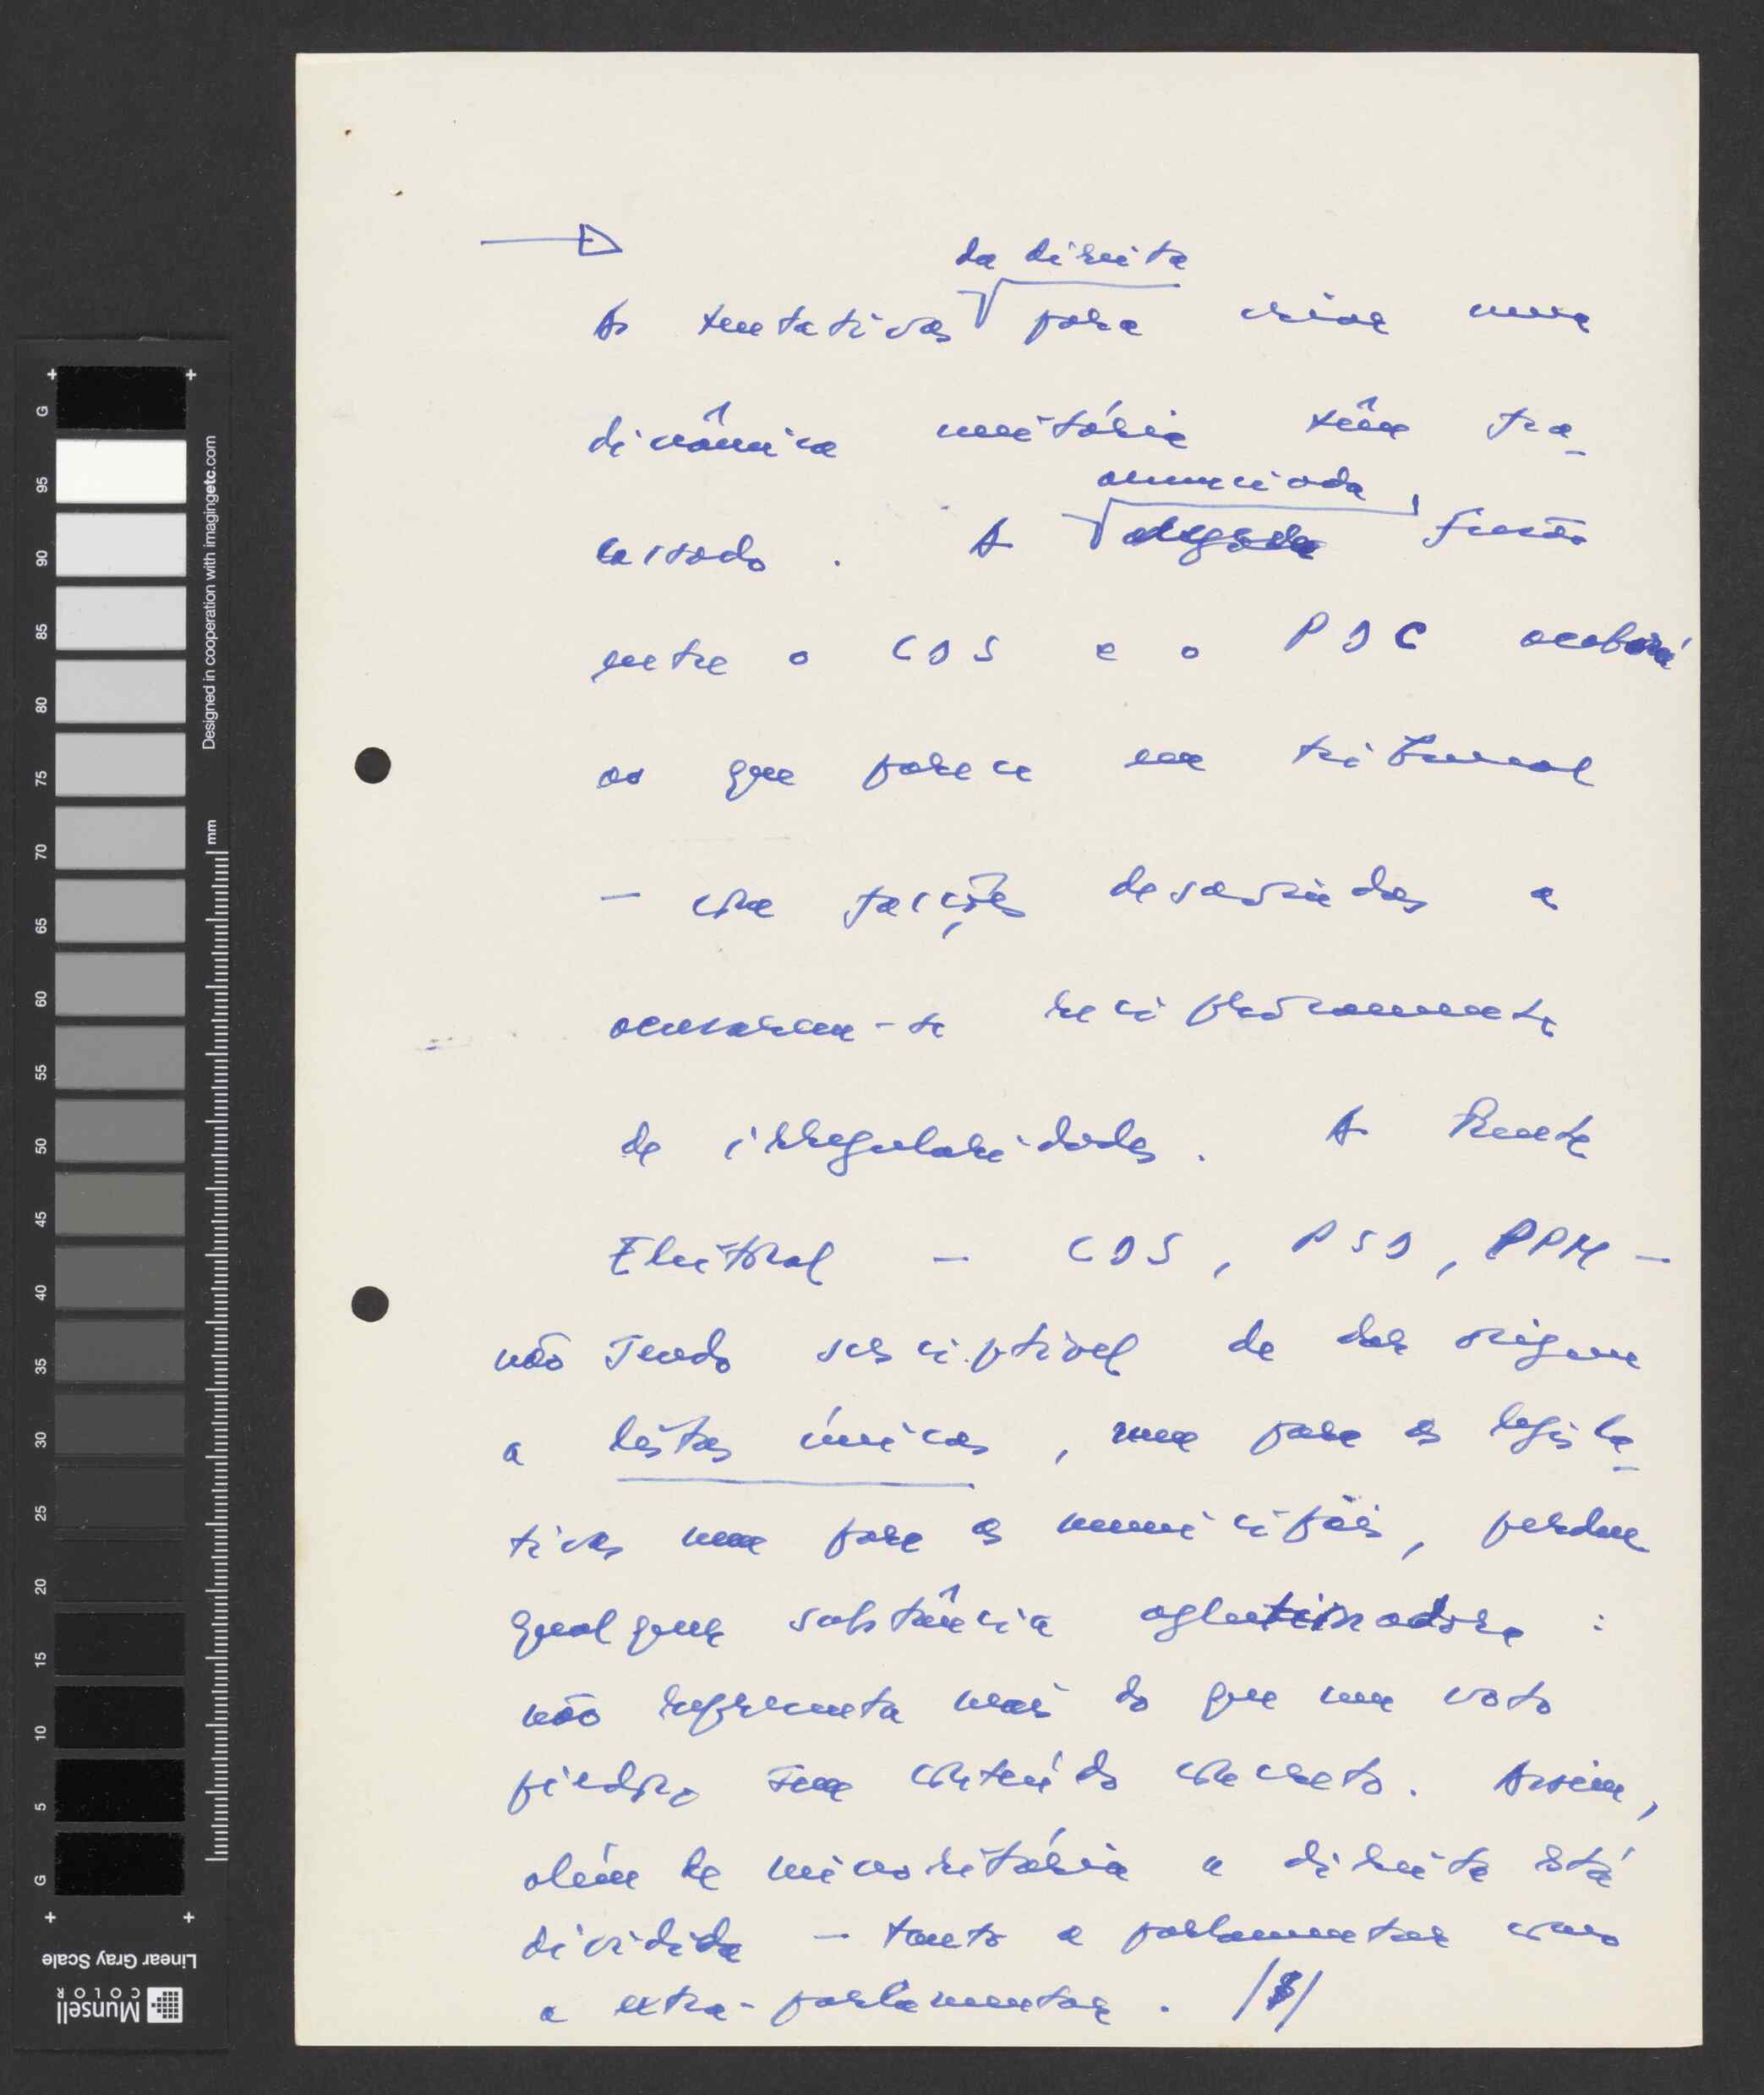 da direita
As tentativas para criar uma
dinâmica unitária têm fra-
anunciada
cassado. A alegada fusão
entre o CDS e o PDC acabará
ao que parece em tribunal
— com facções desavindas a
acusarem-se reciprocamente
de irregularidades. A Frente
Eleitoral — CDS, PSD, PPM —
não sendo susciptível de dar origem
a listas únicas, nem para as legisla-
tivas nem para as municipais, perdeu
qualquer substância aglutinadora :
não representa mais do que um voto
piedoso sem conteúdo concreto. Assim,
além de minoritária a direita está
dividida — tanto a parlamentar como
a extra-parlamentar. /§/
G
95
90
85
80
75
70
65
60
55
50
45
40
35
30
25
20
15
10
5
G
Designed in cooperation with imagingetc.com
mm
Linear Gray Scale
Munsell
COLOR